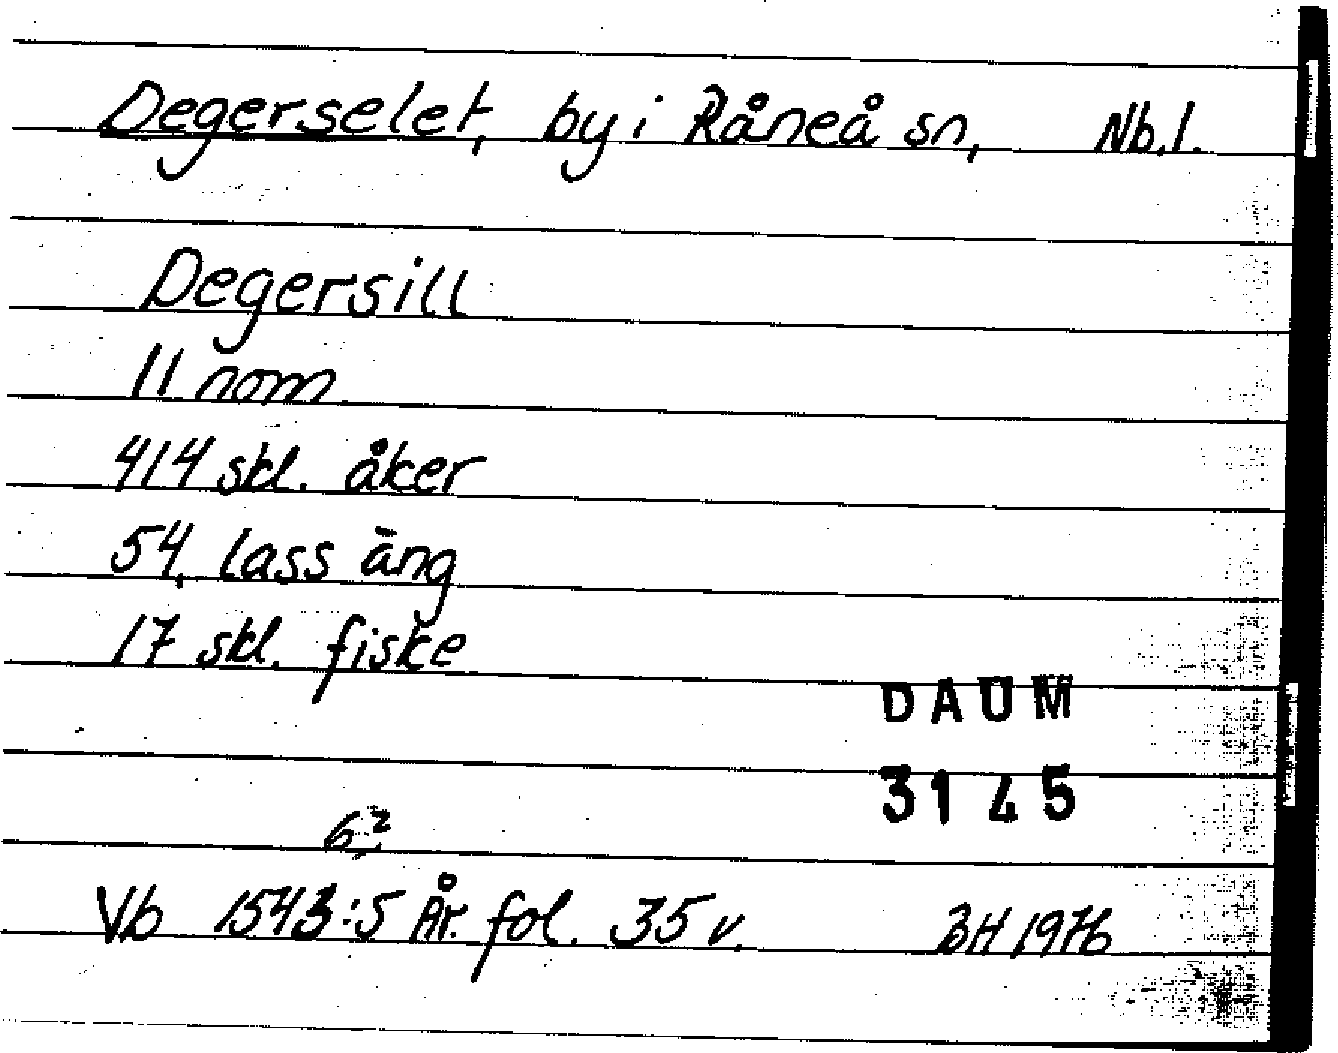 Degerselet, by i Råneå sn, Nb.l.
Degersill
11 nom
414 skl. åker
54, lass äng
17 skl. fiske
DAUM
3145
6:2
Vb 1543:5 År. fol. 35 v. BH 1976